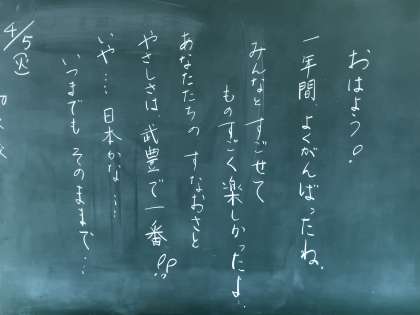 おはよう!
一年間、よくがんばったね。
みんなとすごせて
ものすごく楽しかったよ。
あなたたちの すなおさと
やさしさは、武豊で一番!!
いや… 日本かな……
いつまでも そのままで…
4/5